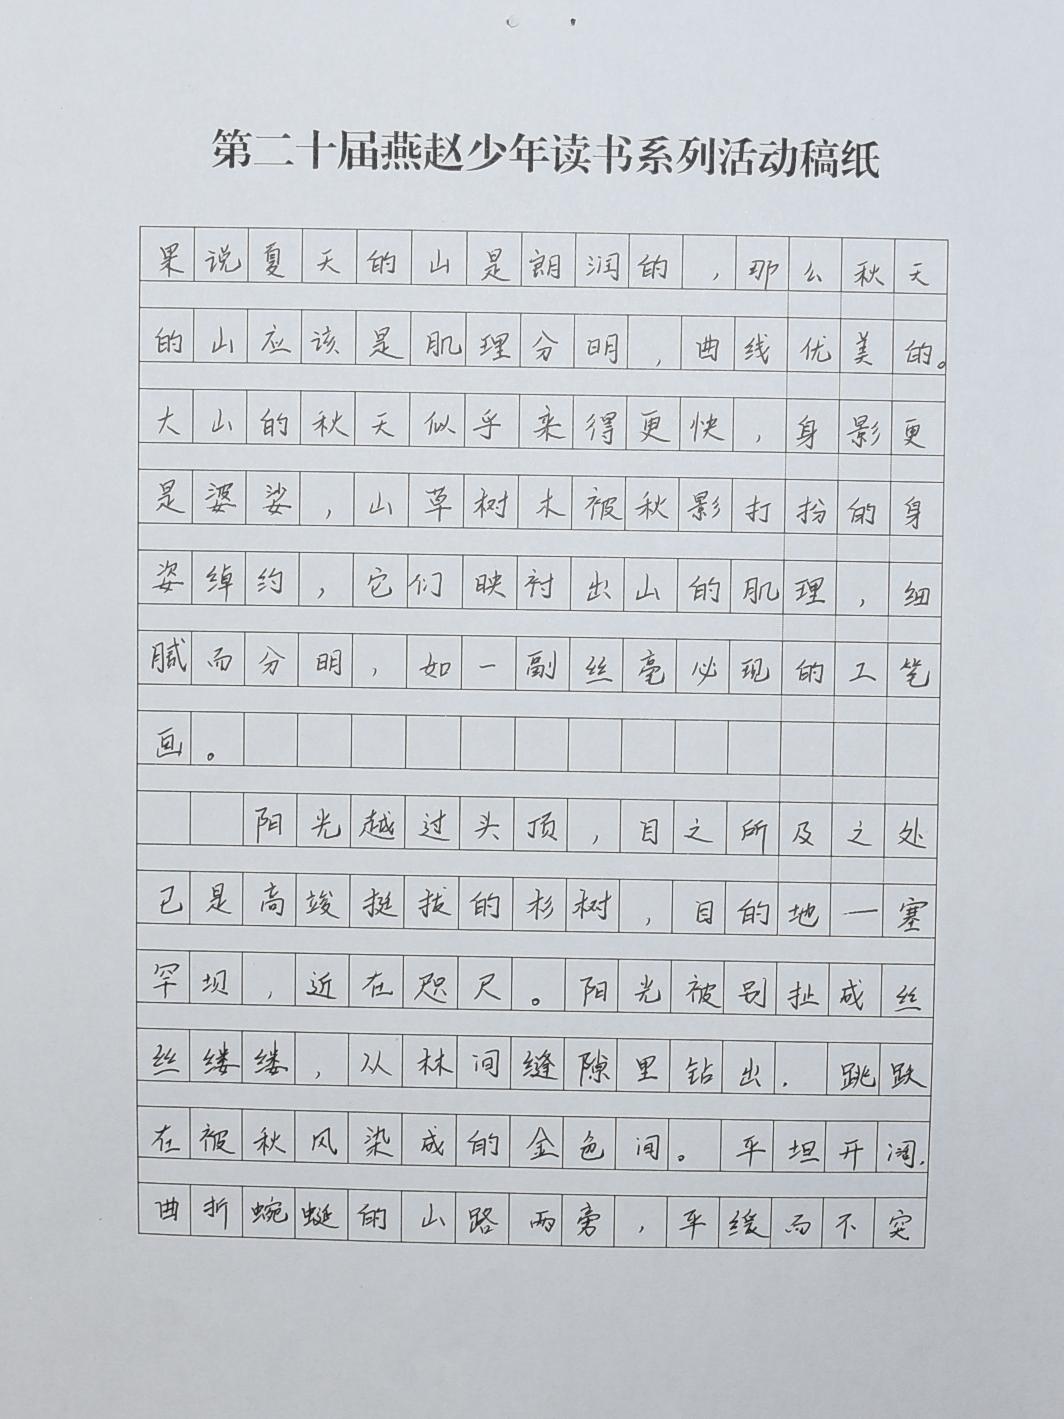 第二十届燕赵少年读书系列活动稿纸
果说夏天的山是朗润的,那么秋天
的山应该是肌理分明,曲线优美的。
大山的秋天似乎来得更快,身影更
是婆娑,山草树木被秋影打扮的身
姿绰约,它们映衬出山的肌理,细
腻而分明,如一副丝毫必现的工笔
画。
阳光越过头顶,目之所及之处
已是高竣挺拔的杉树,目的地一塞
罕坝,近在咫尺。阳光被剐扯成丝
丝缕缕,从林间缝隙里钻出.跳跃
在被秋风染成的金色间。平坦开阔.
曲折蜿蜒的山路两旁,平缓而不突